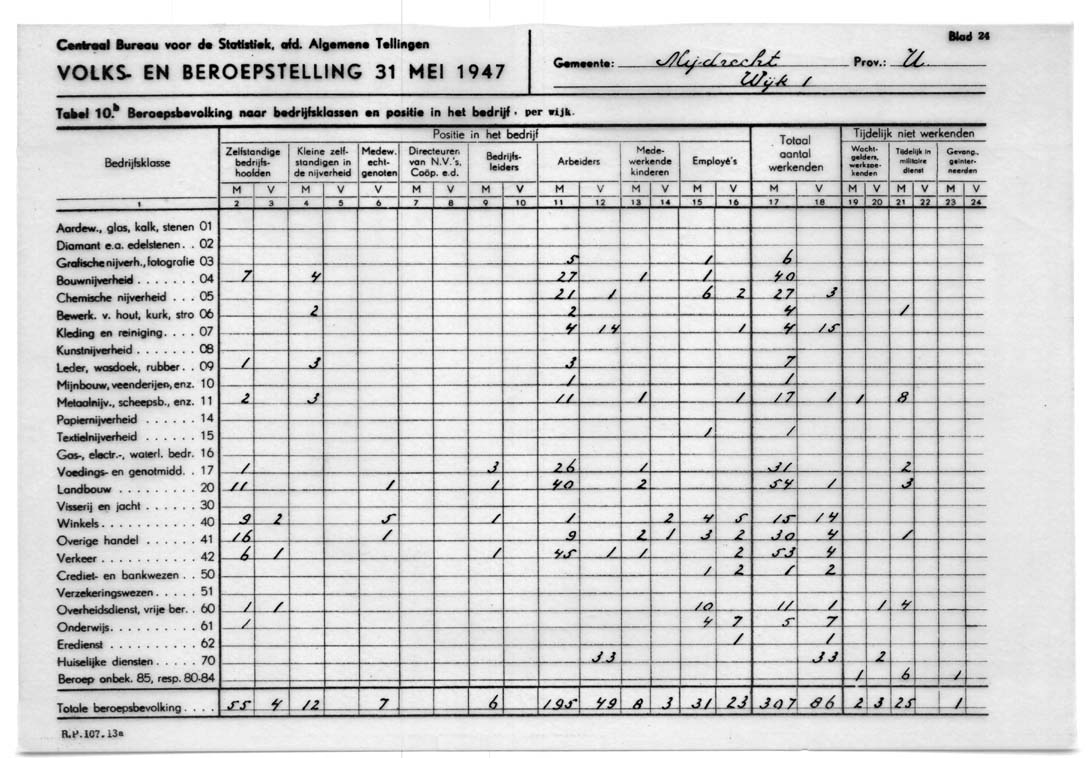 Centraal Bureau voor de Statistiek, afd. Algemene Tellingen
Blad 24
VOLKS- EN BEROEPSTELLING 31 MEI 1947
Gemeente: Mijdrecht Prov.: U.
Wijk 1
Tabel 10.b Beroepsbevolking naar bedrijfsklassen en positie in het bedrijf, per wijk.
Bedrijfsklasse
Positie in het bedrijf
Totaal aantal werkenden
Tijdelijk niet werkenden
Zelfstandige bedrijfs-hoofden
Kleine zelf-standigen in de nijverheid
Medew. echt-genoten
Directeuren van N.V.'s, Coöp. e.d.
Bedrijfs-leiders
Arbeiders
Mede-werkende kinderen
Employé's
Wacht-gelders, werkzoe-kenden
Tijdelijk in militaire dienst
Gevang., geïnter-neerden
M V M V V M V M V M V M V M V M V M V M V M V
1 2 3 4 5 6 7 8 9 10 11 12 13 14 15 16 17 18 19 20 21 22 23 24
Aardew., glas, kalk, stenen 01
Diamant e.a. edelstenen . . 02
Grafische nijverh., fotografie 03 5 1 6
Bouwnijverheid . . . . . . . 04 7 4 27 1 1 40
Chemische nijverheid . . . 05 21 1 6 2 27 3
Bewerk. v. hout, kurk, stro 06 2 2 4 1
Kleding en reiniging . . . . 07 4 14 1 4 15
Kunstnijverheid . . . . . . . 08
Leder, wasdoek, rubber . . 09 1 3 3 7
Mijnbouw, veenderijen, enz. 10 1 1
Metaalnijv., scheepsb., enz. 11 2 3 11 1 1 17 1 1 8
Papiernijverheid . . . . . . 14
Textielnijverheid . . . . . . 15 1 1
Gas-, electr.-, waterl. bedr. 16
Voedings- en genotmidd. . 17 1 3 26 1 31 2
Landbouw . . . . . . . . . 20 11 1 1 40 2 54 1 3
Visserij en jacht . . . . . . 30
Winkels . . . . . . . . . . . 40 9 2 5 1 1 2 4 5 15 14
Overige handel . . . . . . 41 16 1 9 2 1 3 2 30 4 1
Verkeer . . . . . . . . . . . 42 6 1 1 45 1 1 2 53 4
Crediet- en bankwezen . . 50 1 2 1 2
Verzekeringswezen . . . . . 51
Overheidsdienst, vrije ber. . 60 1 1 10 11 1 1 4
Onderwijs . . . . . . . . . . 61 1 4 7 5 7
Eredienst . . . . . . . . . . 62 1 1
Huiselijke diensten . . . . . 70 33 33 2
Beroep onbek. 85, resp. 80-84 1 6 1
Totale beroepsbevolking . . . . 55 4 12 7 6 195 49 8 3 31 23 307 86 2 3 25 1
R.P.107.13a